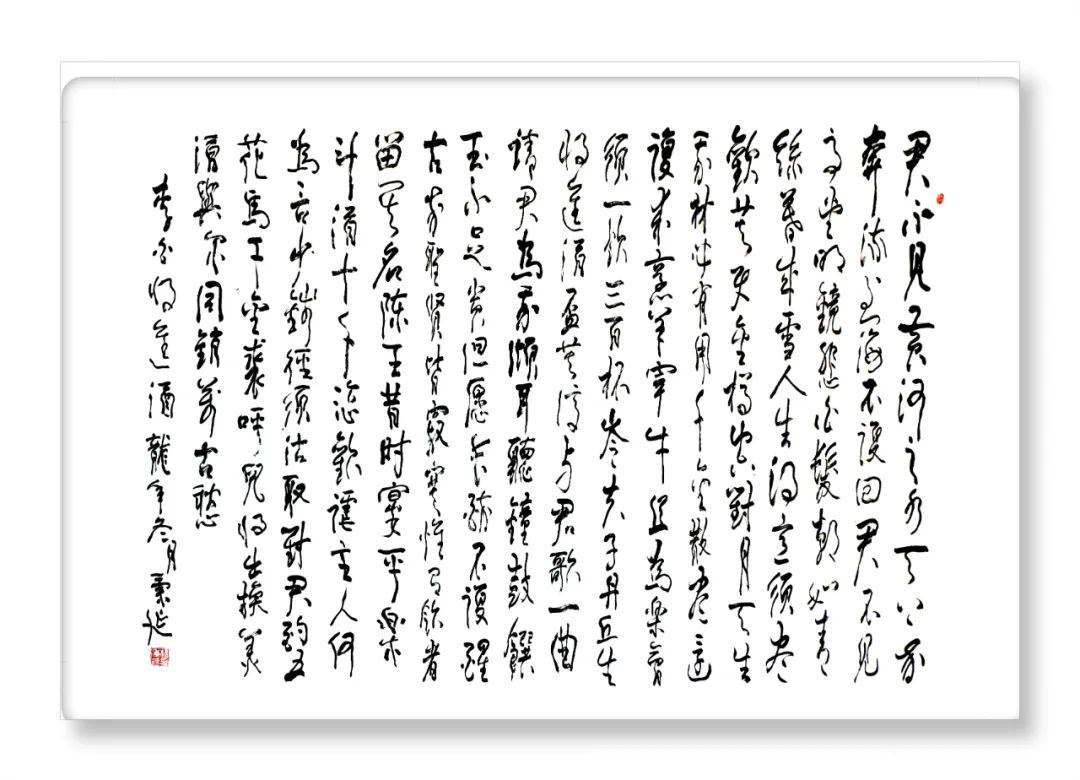 君不見黄河之水天上来
奔流到海不復回君不見
高堂明鏡悲白髮朝如青
絲暮成雪人生得意須盡
歡莫使金樽空對月天生
我材必有用千金散盡還
復来烹羊宰牛且為樂會
須一飲三百杯岑夫子丹丘生
将進酒盃莫停与君歌一曲
請君為我傾耳聽鐘鼓饌
玉不足貴但願長醉不復醒
古来聖賢皆寂寞惟有飲者
留其名陳王昔时宴平樂
斗酒十千恣歡謔主人何
為言少錢徑須沽取對君酌五
花馬千金裘呼兒将出換美
酒與尔同銷萬古愁
李白将進酒龍年冬月